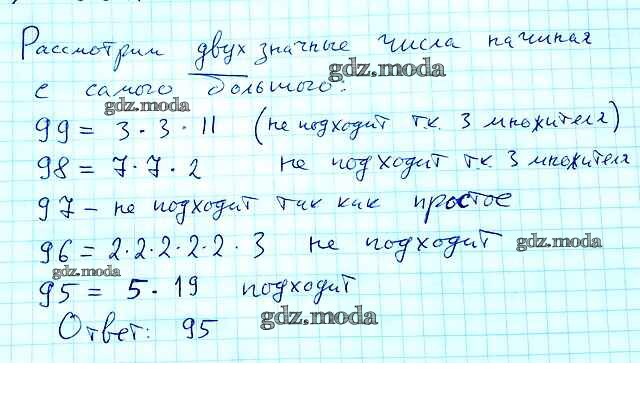 Рассмотрим двух значные числа начиная
gdz.moda
с самого большого:
gdz.moda
99 = 3 · 3 · 11 (не подходит т.к. 3 множителя)
98 = 7 · 7 · 2 не подходит т.к. 3 множителя
97 – не подходит так как простое
96 = 2·2·2·2·2·3 не подходит gdz.moda
gdz.moda
95 = 5 · 19 подходит
Ответ: 95 gdz.moda